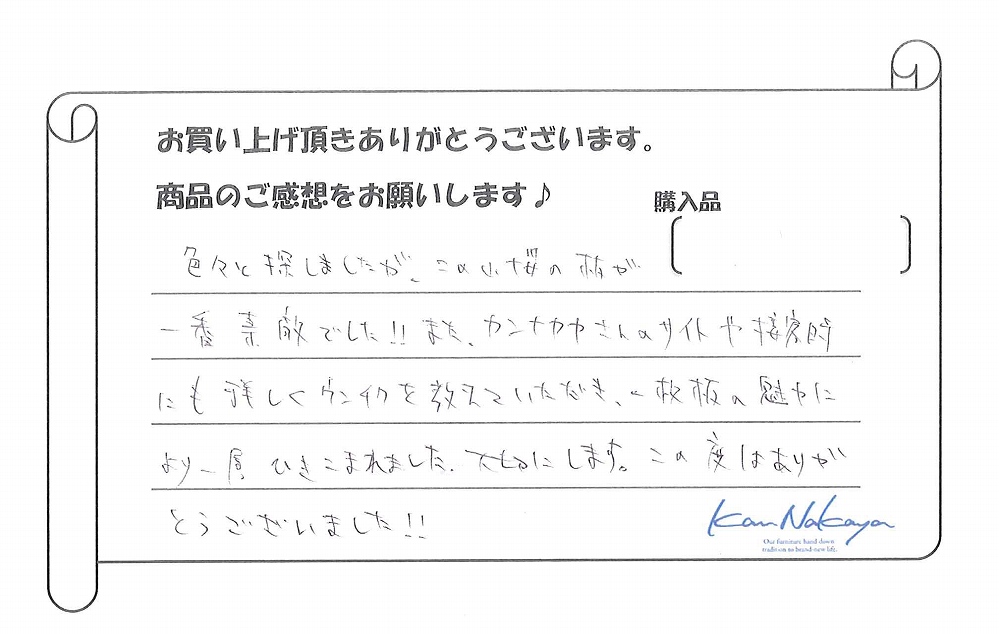 お買い上げ頂きありがとうございます。
商品のご感想をお願いします♪
購入品
色々と探しましたが、この山桜の材が
一番素敵でした!!また、カンナカヤさんのサイトや接客時
にも詳しくウンチクを教えていただき、一枚板の魅力に
より一層ひきこまれました。大切にします。この度はありが
とうございました!!
Kan Nakaya
Our furniture hand down
tradition to brand-new life.